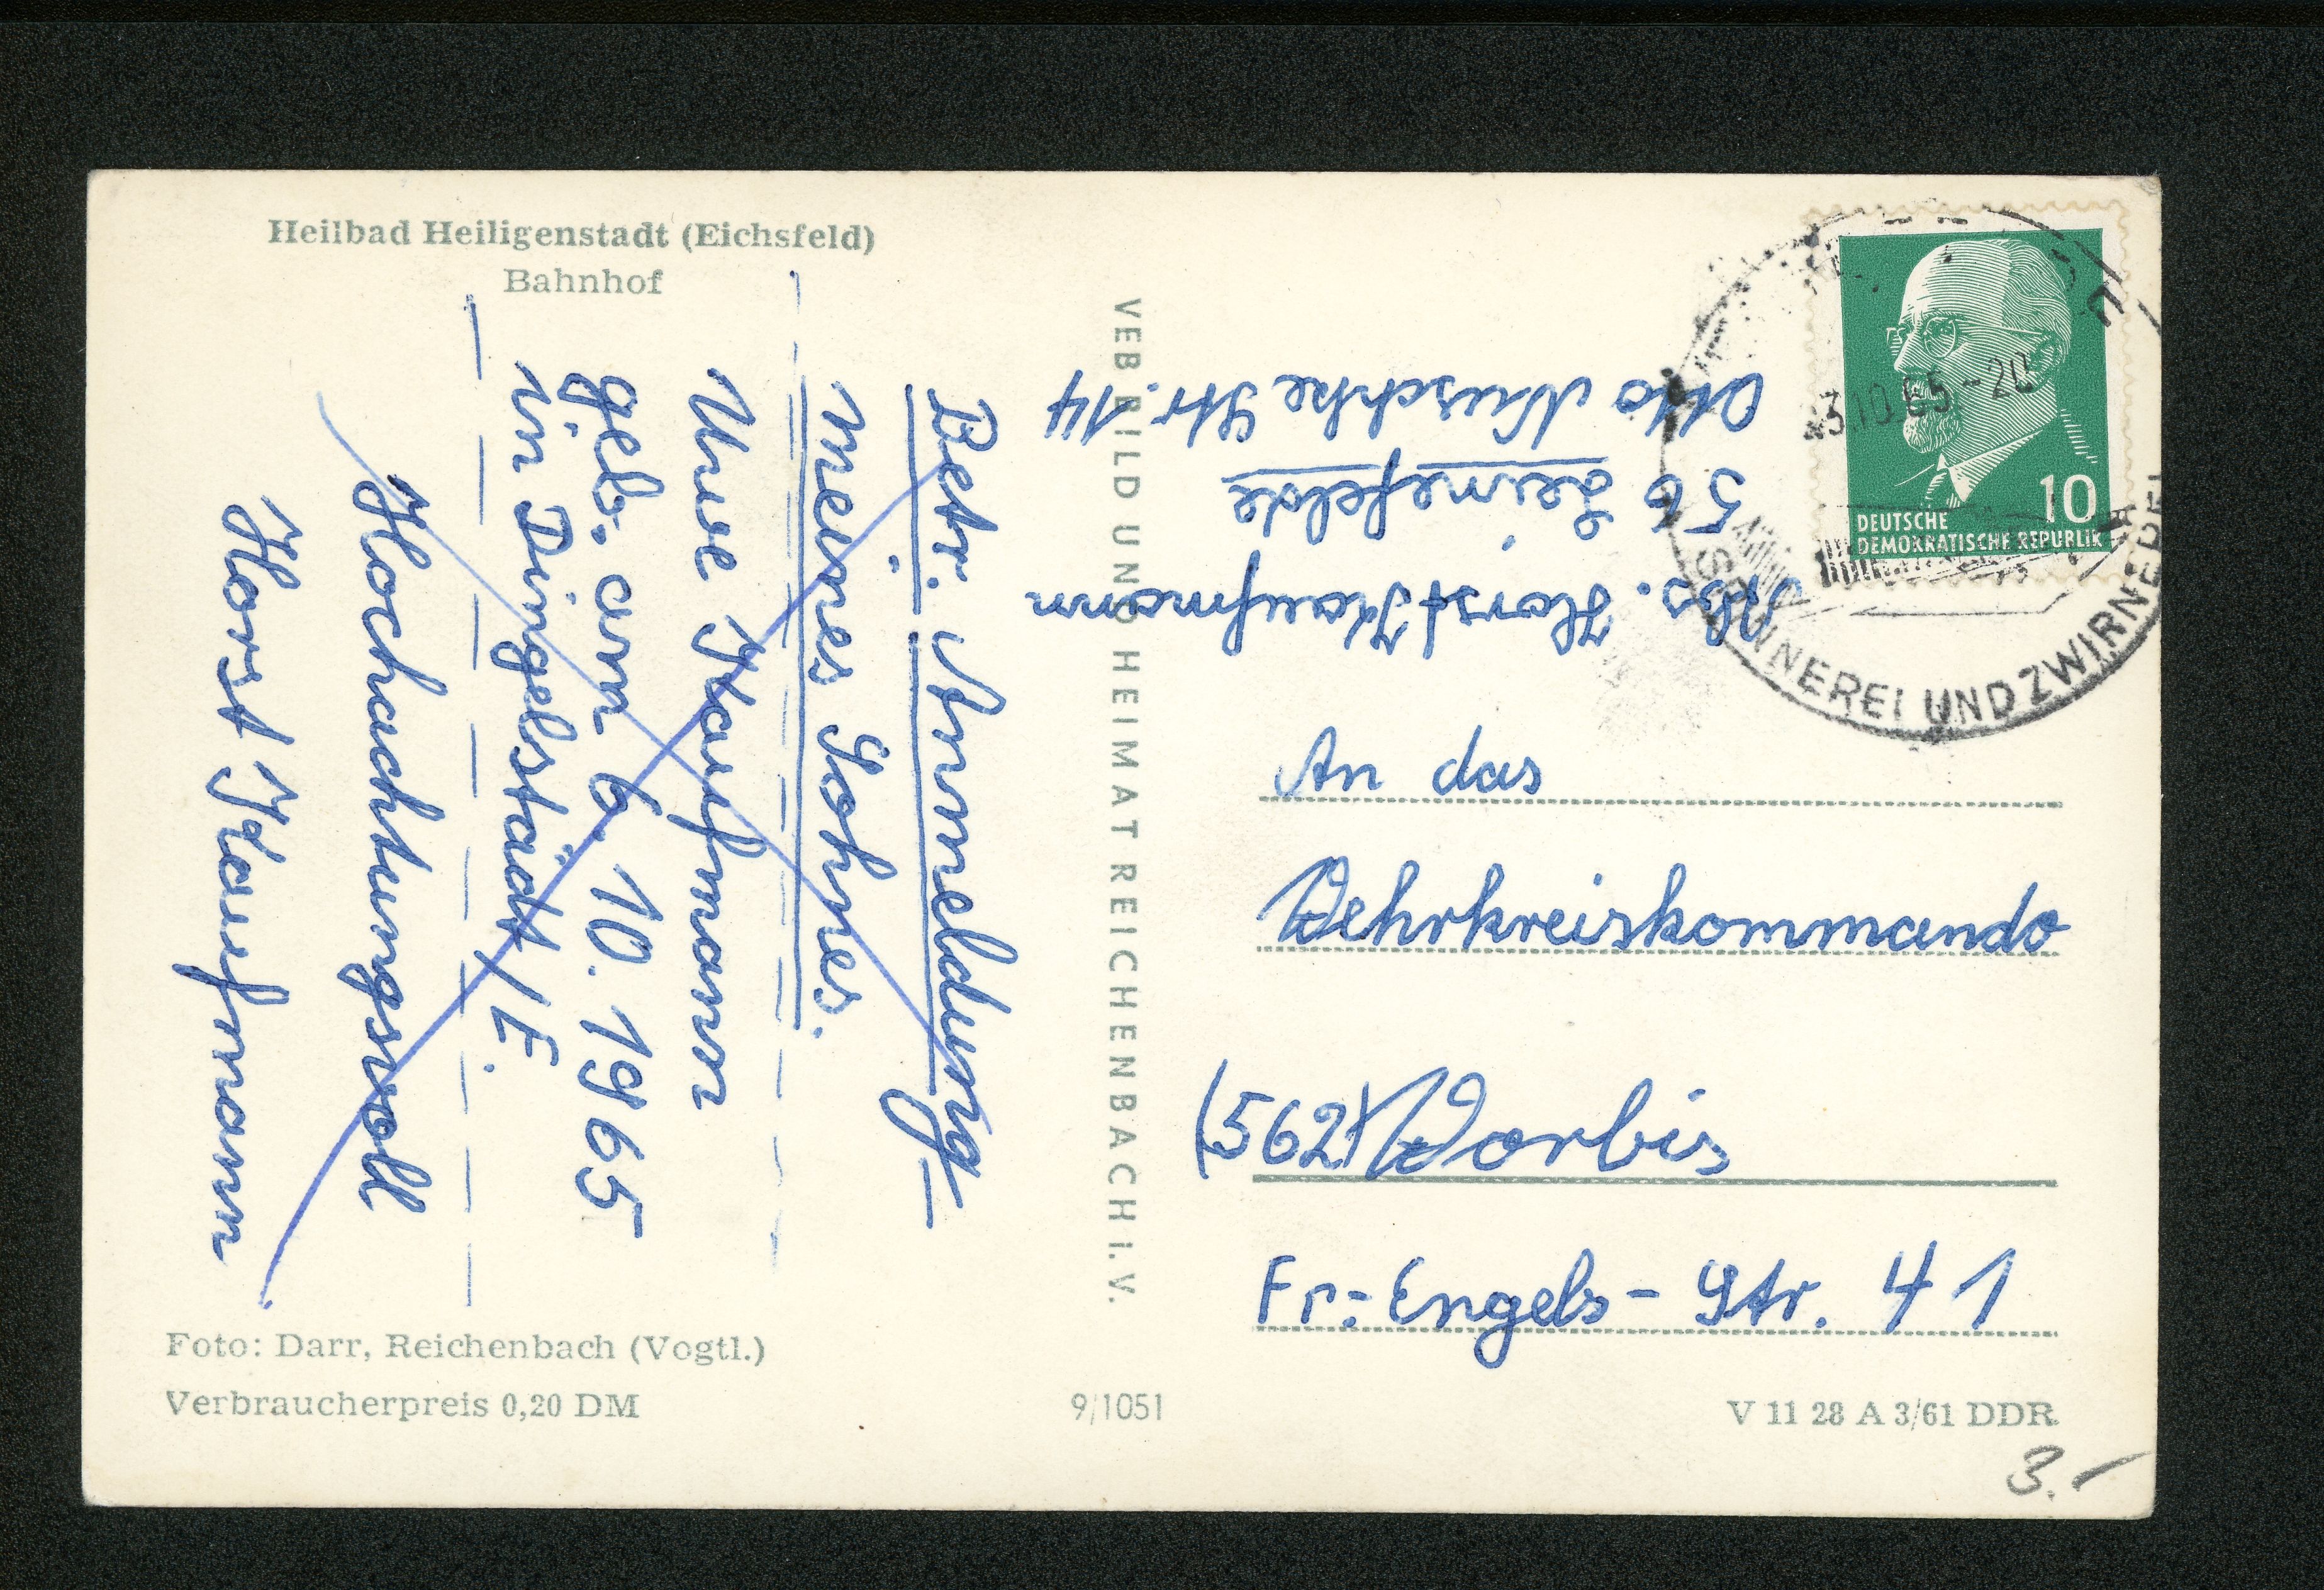 Heilbad Heiligenstadt (Eichsfeld)
Bahnhof
Betr. Anmeldung
meines Sohnes.
Uwe Kaufmann
geb. am 6. 10. 1965
in Dingelstädt / E.
Hochachtungsvoll
Horst Kaufmann
Foto: Darr, Reichenbach (Vogtl.)
Verbraucherpreis 0,20 DM
VEB BILD UND HEIMAT REICHENBACH I. V.
9/1051
Abs. Horst Kaufmann
56 Leinefelde
Otto Nuschke Str. 14
10
DEUTSCHE
DEMOKRATISCHE REPUBLIK
3.10.65-20
SPINNEREI UND ZWIRNEREI
An das
Wehrkreiskommando
(562) Worbis
Fr.-Engels-Str. 41
V 11 28 A 3/61 DDR
3.-